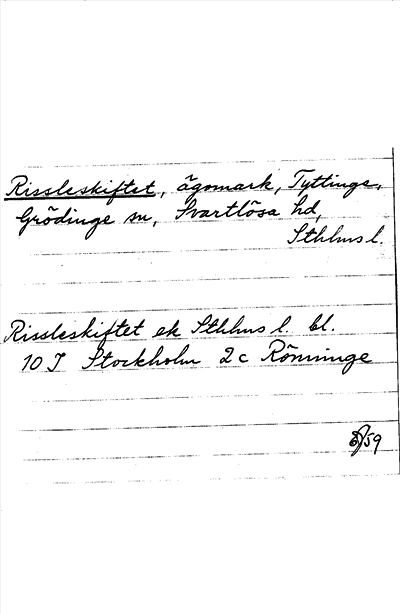 Rissleskiftet, ägomark, Tyttinge,
Grödinge sn, Svartlösa hd,
Sthlms l.
Rissleskiftet ek Sthlms l. bl.
10 I Stockholm 2 c Rönninge
59